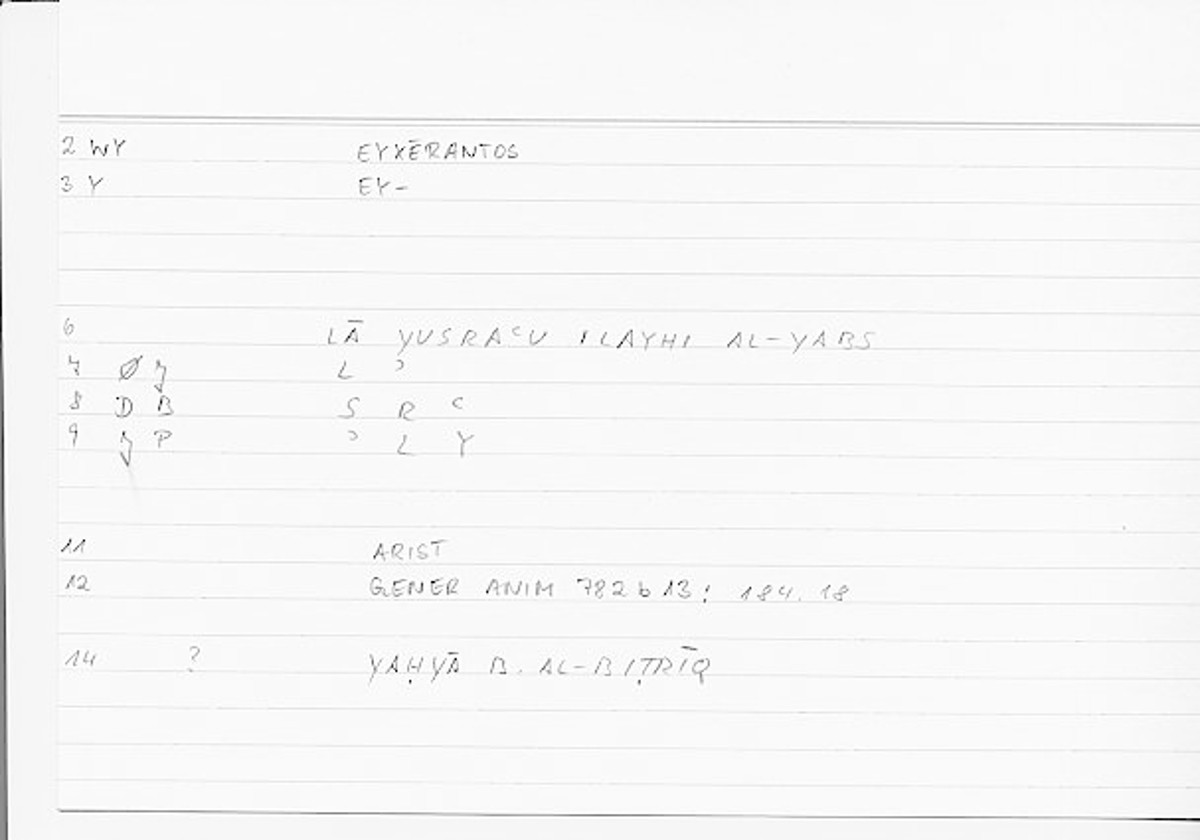 2 WY EYXĒRANTOS
3 Y EY-
6 LĀ YUSRAʿU ILAYHI AL-YABS
7 Ø J L ʾ
8 D B S R ʿ
9 J P ʾ L Y
11 ARIST
12 GENER ANIM 782 b 13 ; 184. 18
14 ? YAḤYĀ B. AL-BIṬRĪQ